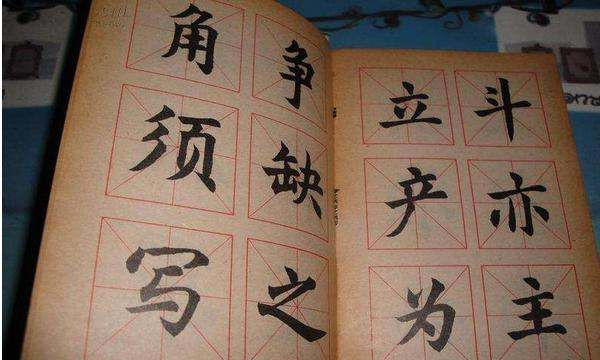 角 争
须 缺
写 之
立 斗
产 亦
为 主